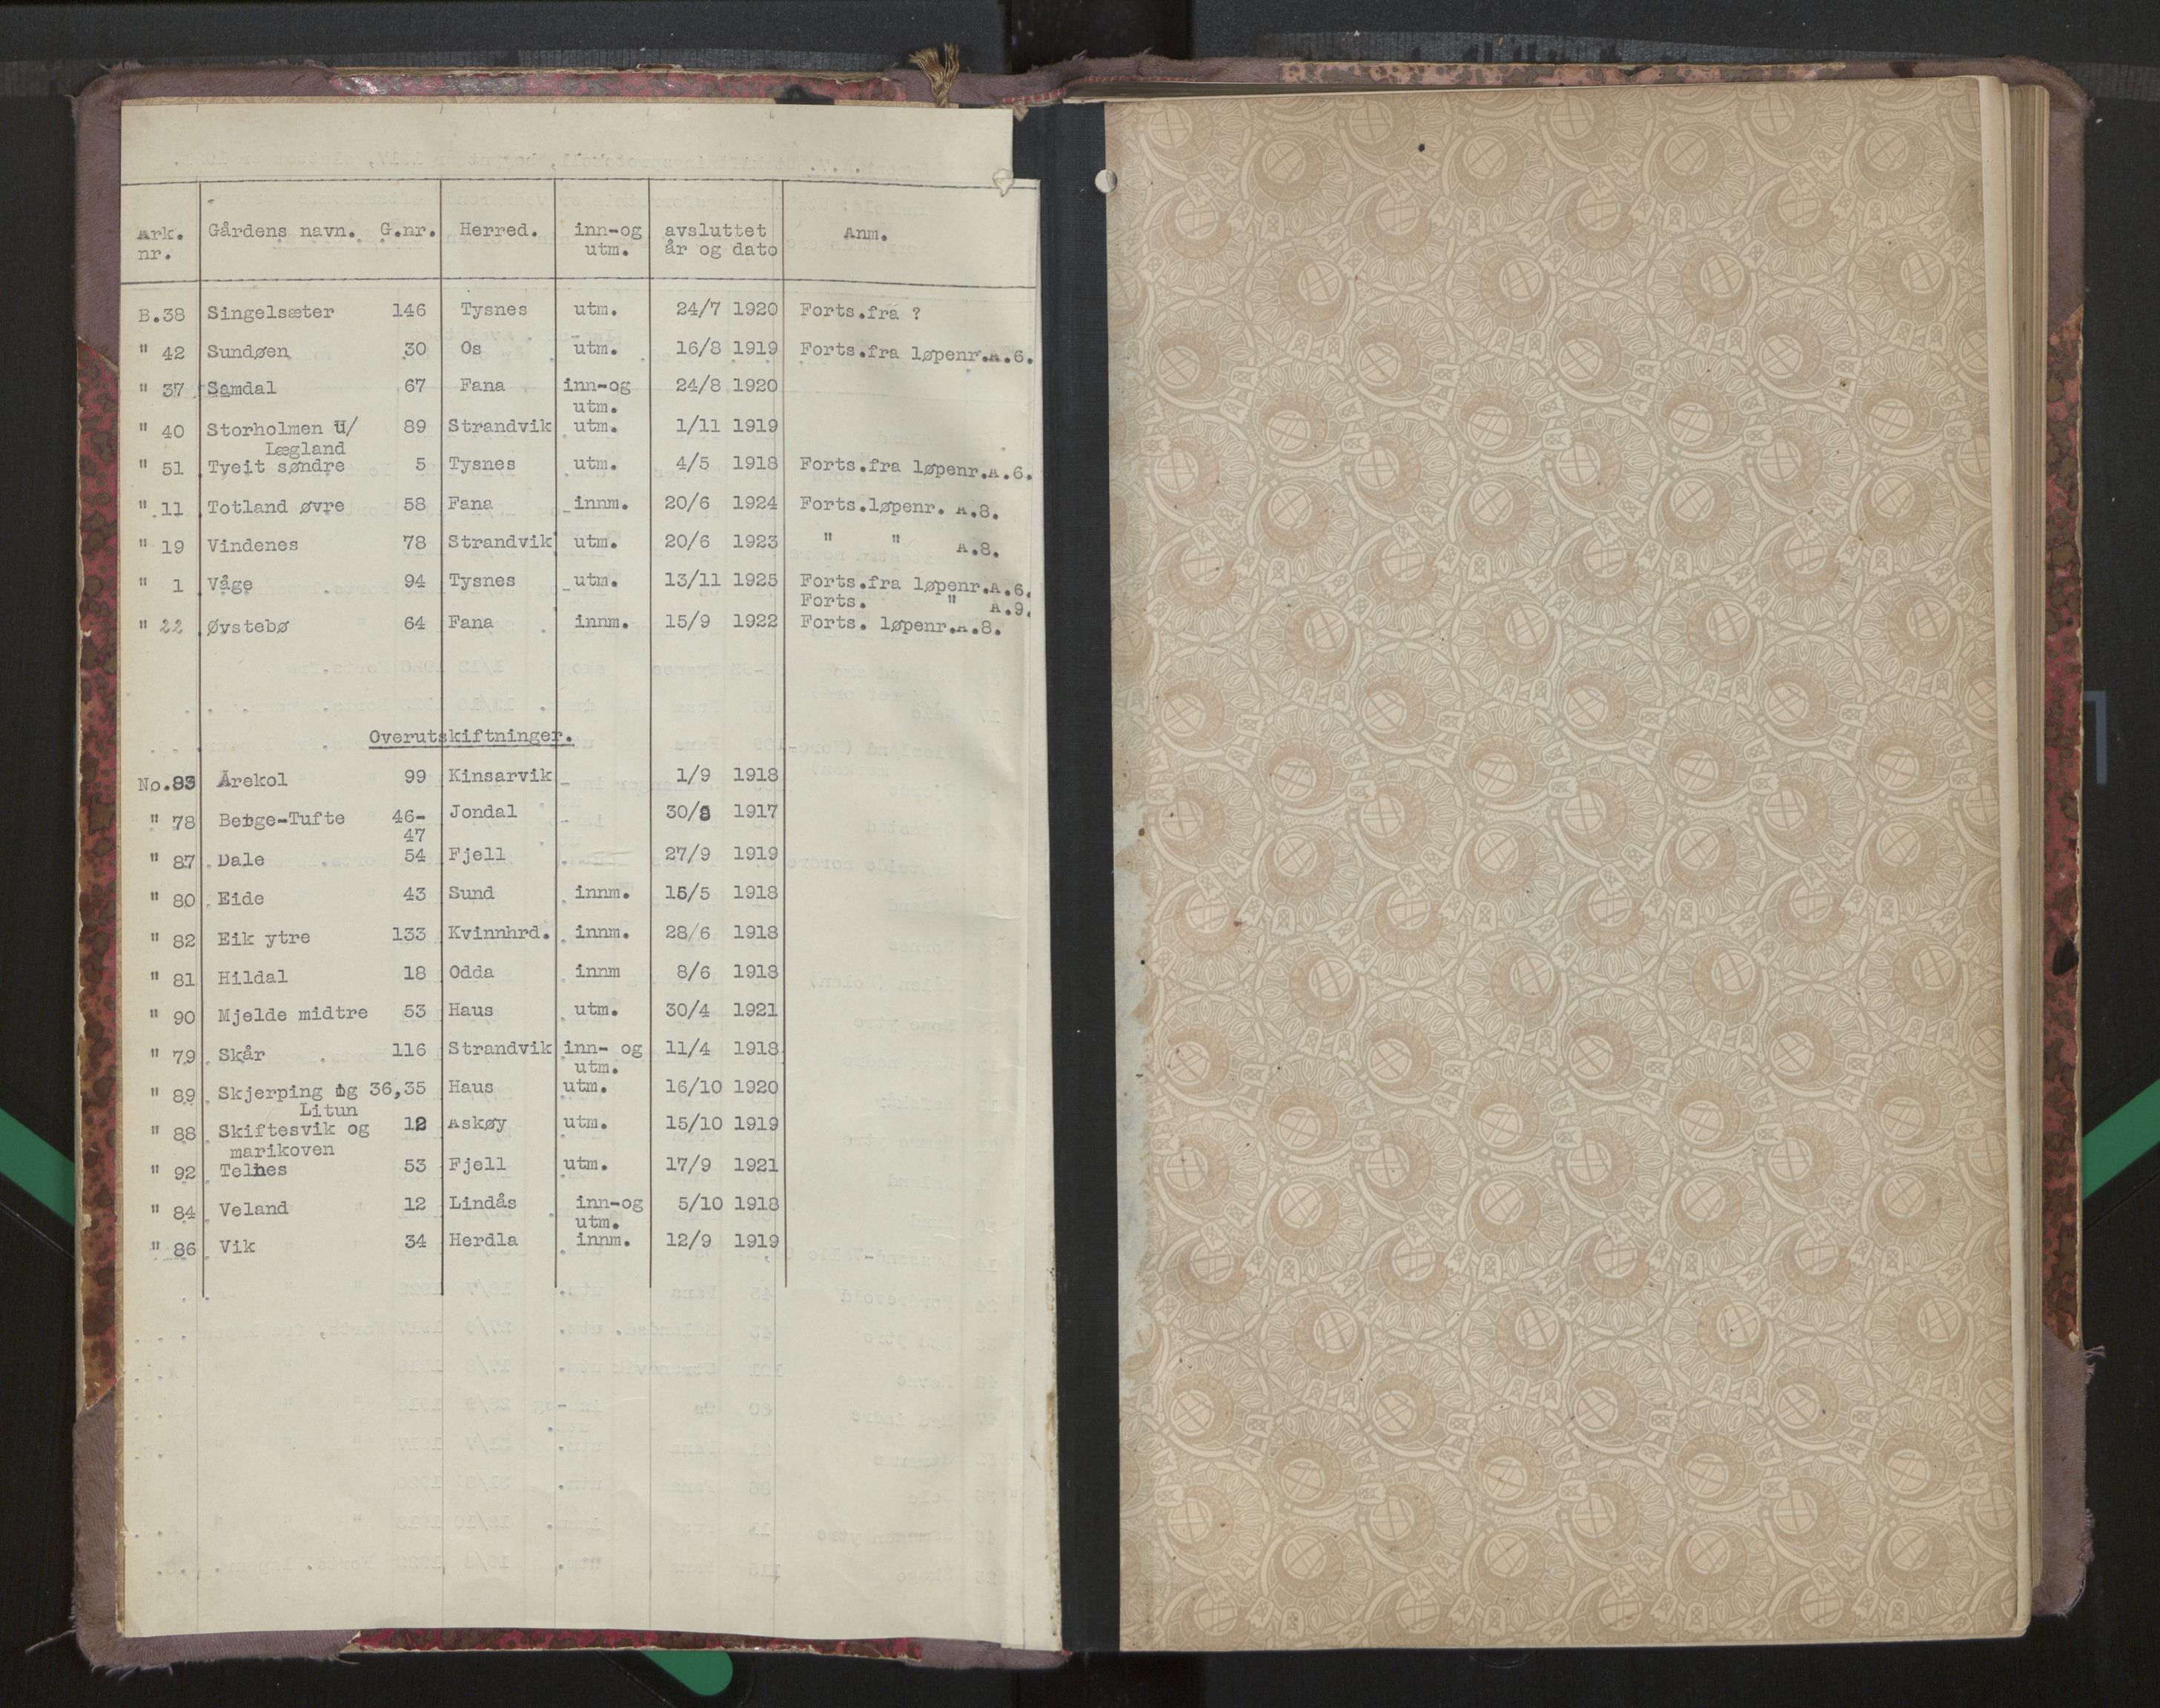 Ark. Gårdens navn. G.nr. Herred. inn-og avsluttet Anm.
nr. utm. år og dato
B.38 Singelsæter 146 Tysnes utm. 24/7 1920 Forts.fra ?
" 42 Sundøen 30 Os utm. 16/8 1919 Forts.fra løpenr.A.6.
" 37 Samdal 67 Fana inn-og 24/8 1920
utm.
" 40 Storholmen U/ 89 Strandvik utm. 1/11 1919
Lægland
" 51 Tveit søndre 5 Tysnes utm. 4/5 1918 Forts.fra løpenr.A.6.
" 11 Totland øvre 58 Fana innm. 20/6 1924 Forts.løpenr. A.8.
" 19 Vindenes 78 Strandvik utm. 20/6 1923 " " A.8.
" 1 Våge 94 Tysnes utm. 13/11 1925 Forts.fra løpenr.A.6.
Forts. " A.9.
" 22 Øvstebø 64 Fana innm. 15/9 1922 Forts. løpenr.A.8.
Overutskiftninger.
No.83 Årekol 99 Kinsarvik 1/9 1918
" 78 Berge-Tufte 46- Jondal 30/8 1917
47
" 87 Dale 54 Fjell 27/9 1919
" 80 Eide 43 Sund innm. 15/5 1918
" 82 Eik ytre 133 Kvinnhrd. innm. 28/6 1918
" 81 Hildal 18 Odda innm 8/6 1918
" 90 Mjelde midtre 53 Haus utm. 30/4 1921
" 79 Skår 116 Strandvik inn- og 11/4 1918
utm.
" 89 Skjerping og 36,35 Haus utm. 16/10 1920
Litun
" 88 Skiftesvik og 12 Askøy utm. 15/10 1919
marikoven
" 92 Telnes 53 Fjell utm. 17/9 1921
" 84 Veland 12 Lindås inn-og 5/10 1918
utm.
" 86 Vik 34 Herdla innm. 12/9 1919